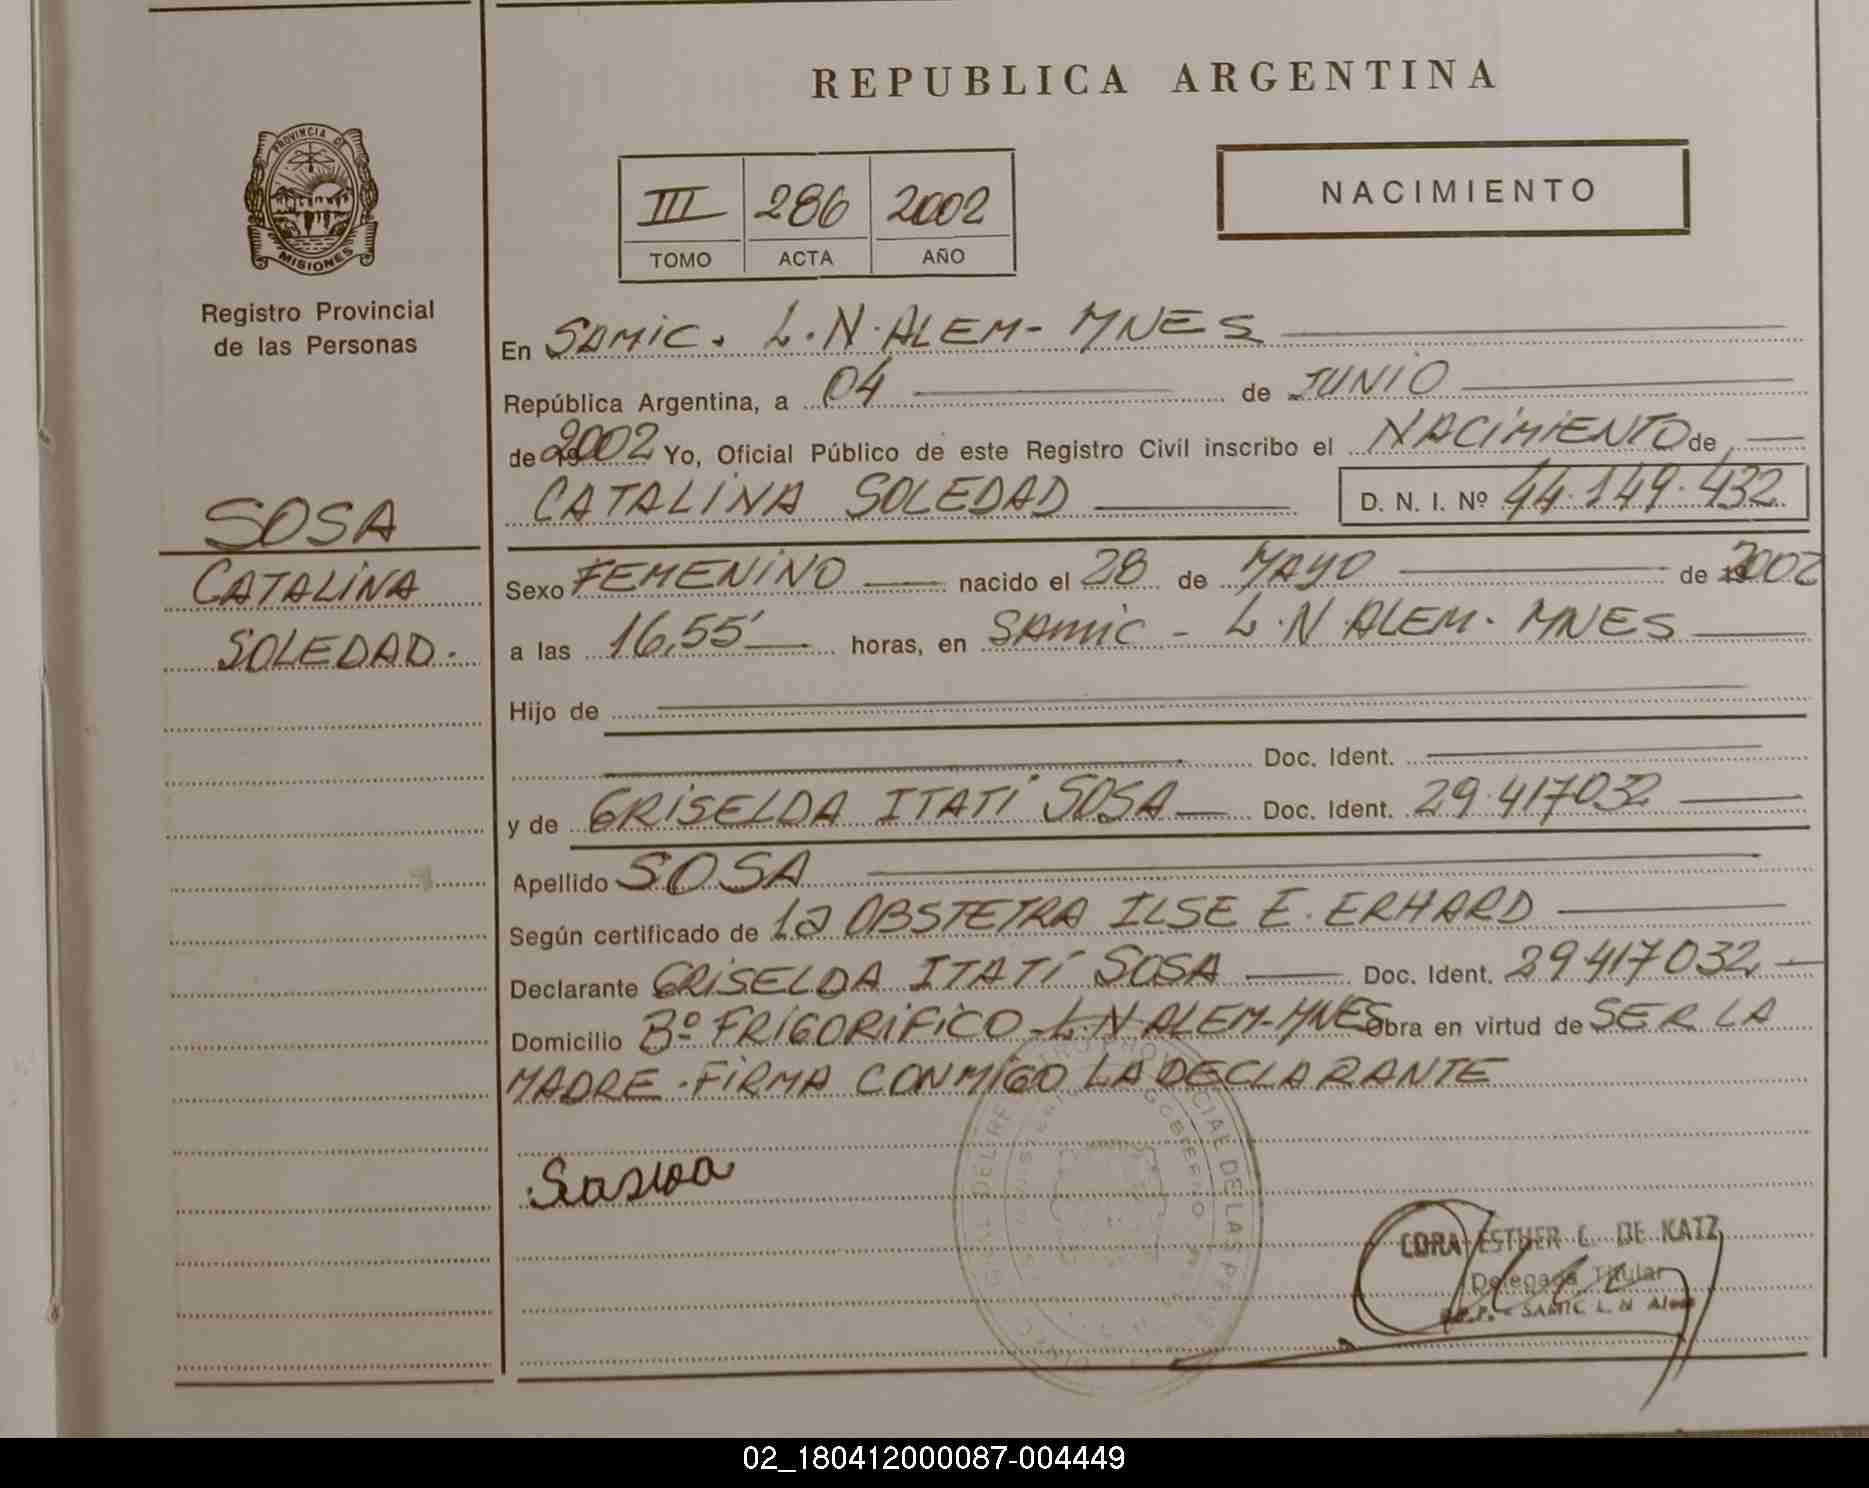 REPUBLICA ARGENTINA
PROVINCIA DE
MISIONES
Registro Provincial
de las Personas
III 286 2002
TOMO ACTA AÑO
NACIMIENTO
SOSA
CATALINA
SOLEDAD.
En SAMIC. L.N.ALEM- MNES
República Argentina, a 04 de JUNIO
de 2002 Yo, Oficial Público de este Registro Civil inscribo el NACIMIENTO de
CATALINA SOLEDAD D. N. I. Nº 44.149.432
Sexo FEMENINO nacido el 28 de MAYO de 2002
a las 16,55' horas, en SAMIC - L.N ALEM. MNES
Hijo de
Doc. Ident.
y de GRISELDA ITATÍ SOSA Doc. Ident. 29.417032
Apellido SOSA
Según certificado de la OBSTETRA ILSE E. ERHARD
Declarante GRISELDA ITATÍ SOSA Doc. Ident. 29417032
Domicilio Bº FRIGORIFICO-L.N ALEM-MNES Obra en virtud de SER LA
MADRE.FIRMA CONMIGO LA DECLARANTE
CORA ESTHER C. DE KATZ
Delegada Titular
R.P.P. - SAMIC L. N Alem
02_180412000087-004449